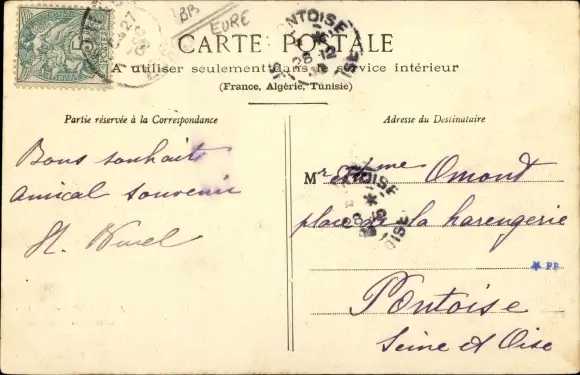 BB
EURE
CARTE POSTALE
A utiliser seulement dans le service intérieur
(France, Algérie, Tunisie)
Partie réservée à la Correspondance
Adresse du Destinataire
Bons souhaits
amical souvenir
Mr et Mme Omont
place de la harengerie
PONTOISE
28 12
OISE
* PP
Pontoise
Seine et Oise